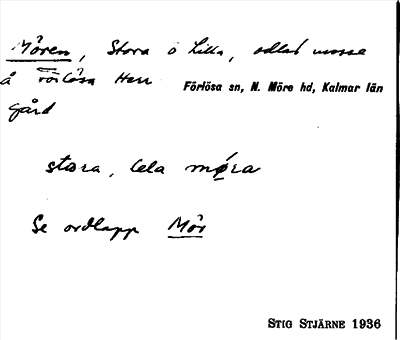 Mören, Stora o Lilla, odlad mosse
å Förlösa Herr
gård
Förlösa sn, N. Möre hd, Kalmar län
stora, lela möra
Se ordlapp Mör
STIG STJÄRNE 1936